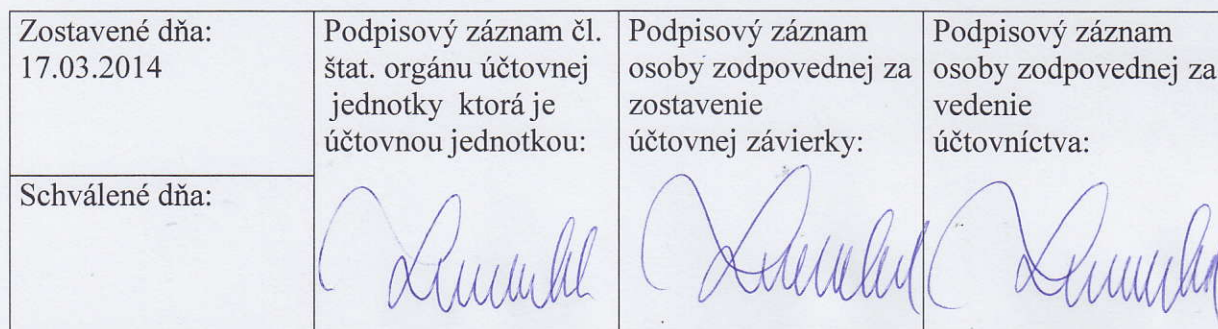 Zostavené dňa:
17.03.2014
Schválené dňa:
Podpisový záznam čl.
štat. orgánu účtovnej
jednotky ktorá je
účtovnou jednotkou:
Podpisový záznam
osoby zodpovednej za
zostavenie
účtovnej závierky:
Podpisový záznam
osoby zodpovednej za
vedenie
účtovníctva: